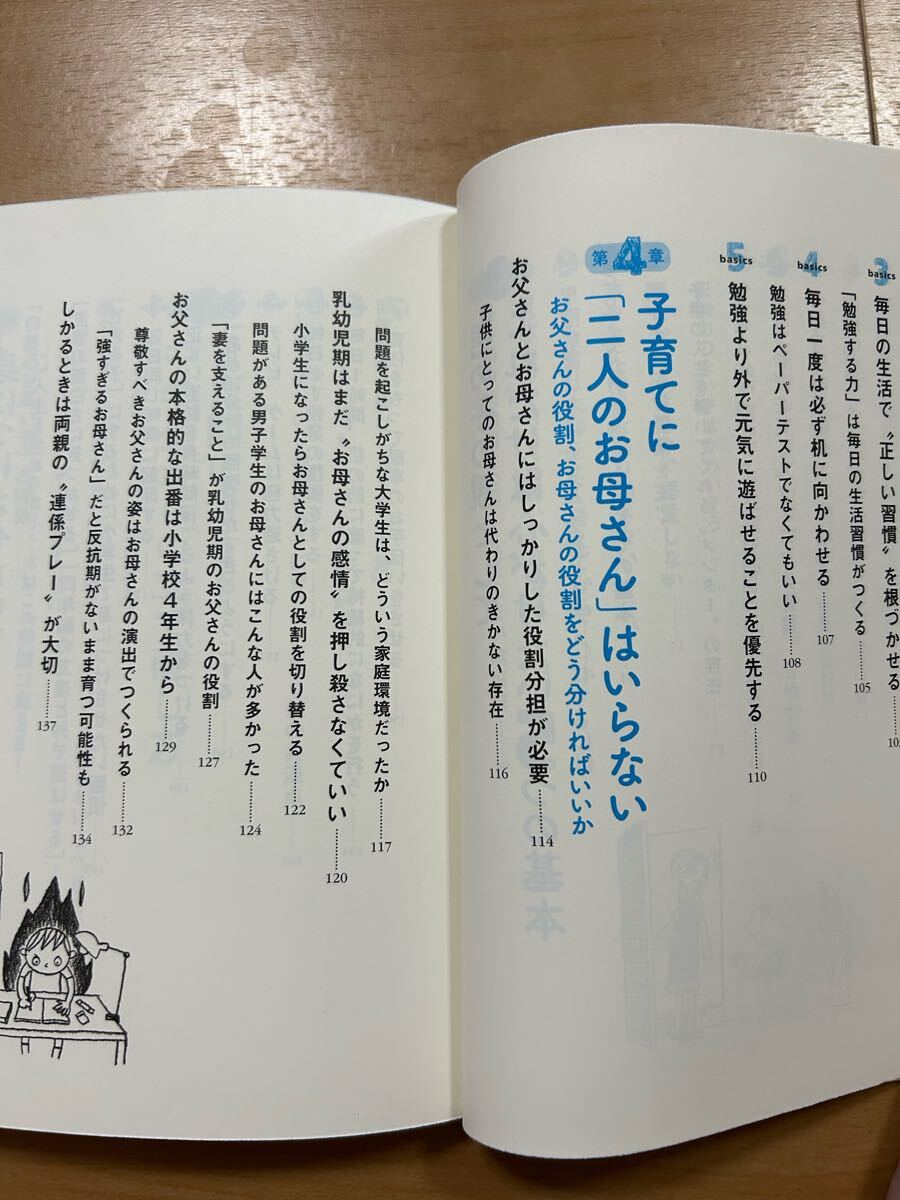 3 basics
毎日の生活で〝正しい習慣〟を根づかせる
「勉強する力」は毎日の生活習慣がつくる……105
4 basics
毎日一度は必ず机に向かわせる……107
勉強はペーパーテストでなくてもいい……108
5 basics
勉強より外で元気に遊ばせることを優先する……110
第4章
子育てに
「二人のお母さん」はいらない
お父さんの役割、お母さんの役割をどう分ければいいか
お父さんとお母さんにはしっかりした役割分担が必要……114
子供にとってのお母さんは代わりのきかない存在……116
問題を起こしがちな大学生は、どういう家庭環境だったか……117
乳幼児期はまだ〝お母さんの感情〟を押し殺さなくていい……120
小学生になったらお母さんとしての役割を切り替える……122
問題がある男子学生のお母さんにはこんな人が多かった……124
「妻を支えること」が乳幼児期のお父さんの役割……127
お父さんの本格的な出番は小学校4年生から……129
尊敬すべきお父さんの姿はお母さんの演出でつくられる……132
「強すぎるお母さん」だと反抗期がないまま育つ可能性も……134
しかるときは両親の〝連係プレー〟が大切……137